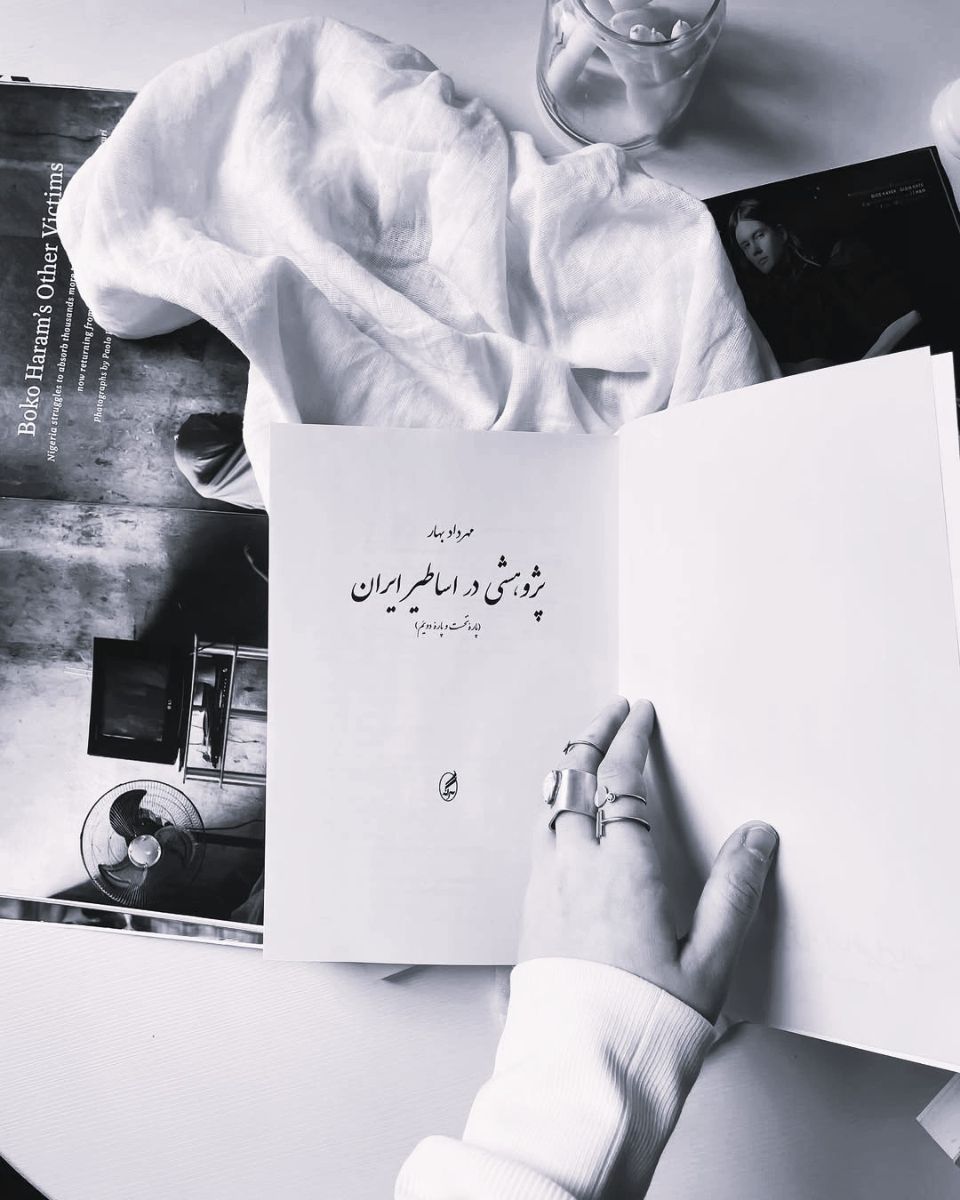 Boko Haram's Other Victims
Nigeria struggles to absorb thousands more
now returning from
Photographs by Paolo
مهرداد بهار
پژوهشی در اساطیر ایران
(پارهٔ نخست و پارهٔ دویم)
آگه